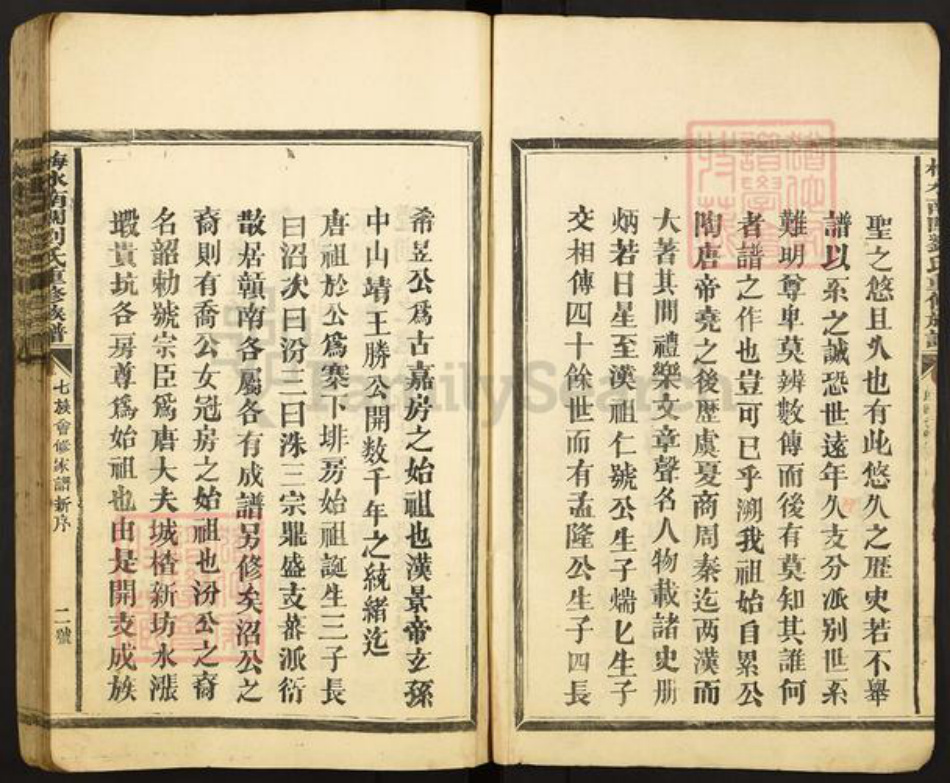 聖之悠且久也有此悠久之歷史若不舉
譜以系之誠恐世遠年久支分派别世系
難明尊卑莫辨數傳而後有莫知其誰何
者譜之作也豈可已乎溯我祖始自累公
陶唐帝堯之後歷虞夏商周秦迄两漢而
大著其間禮樂文章聲名人物載諸史册
炳若日星至漢祖仁號公生子煓匕生子
交相傳四十餘世而有孟隆公生子四長
希昱公爲古嘉房之始祖也漢景帝玄孫
中山靖王勝公開数千年之統緒迄
唐祖於公爲寨下排房始祖誕生三子長
曰沼次曰汾三曰洙三宗鼎盛支蕃派衍
散居贑南各屬各有成譜另修矣沼公之
裔則有喬公女冠房之始祖也汾公之裔
名韶勅號宗臣爲唐大夫城楂新坊水漲
瑕貴坑各房尊爲始祖也由是開支成族
梅水南關刘氏重修族譜
七族會修宗譜新序
二號
FamilySearch